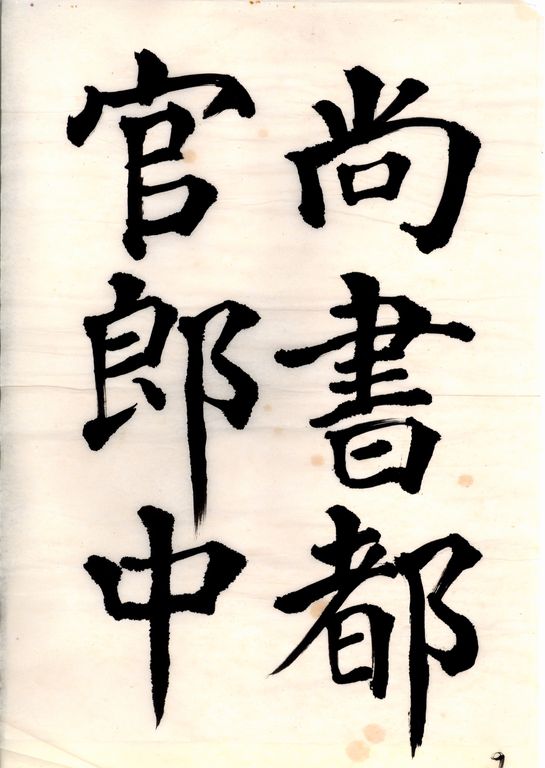 尚書都
官郎中